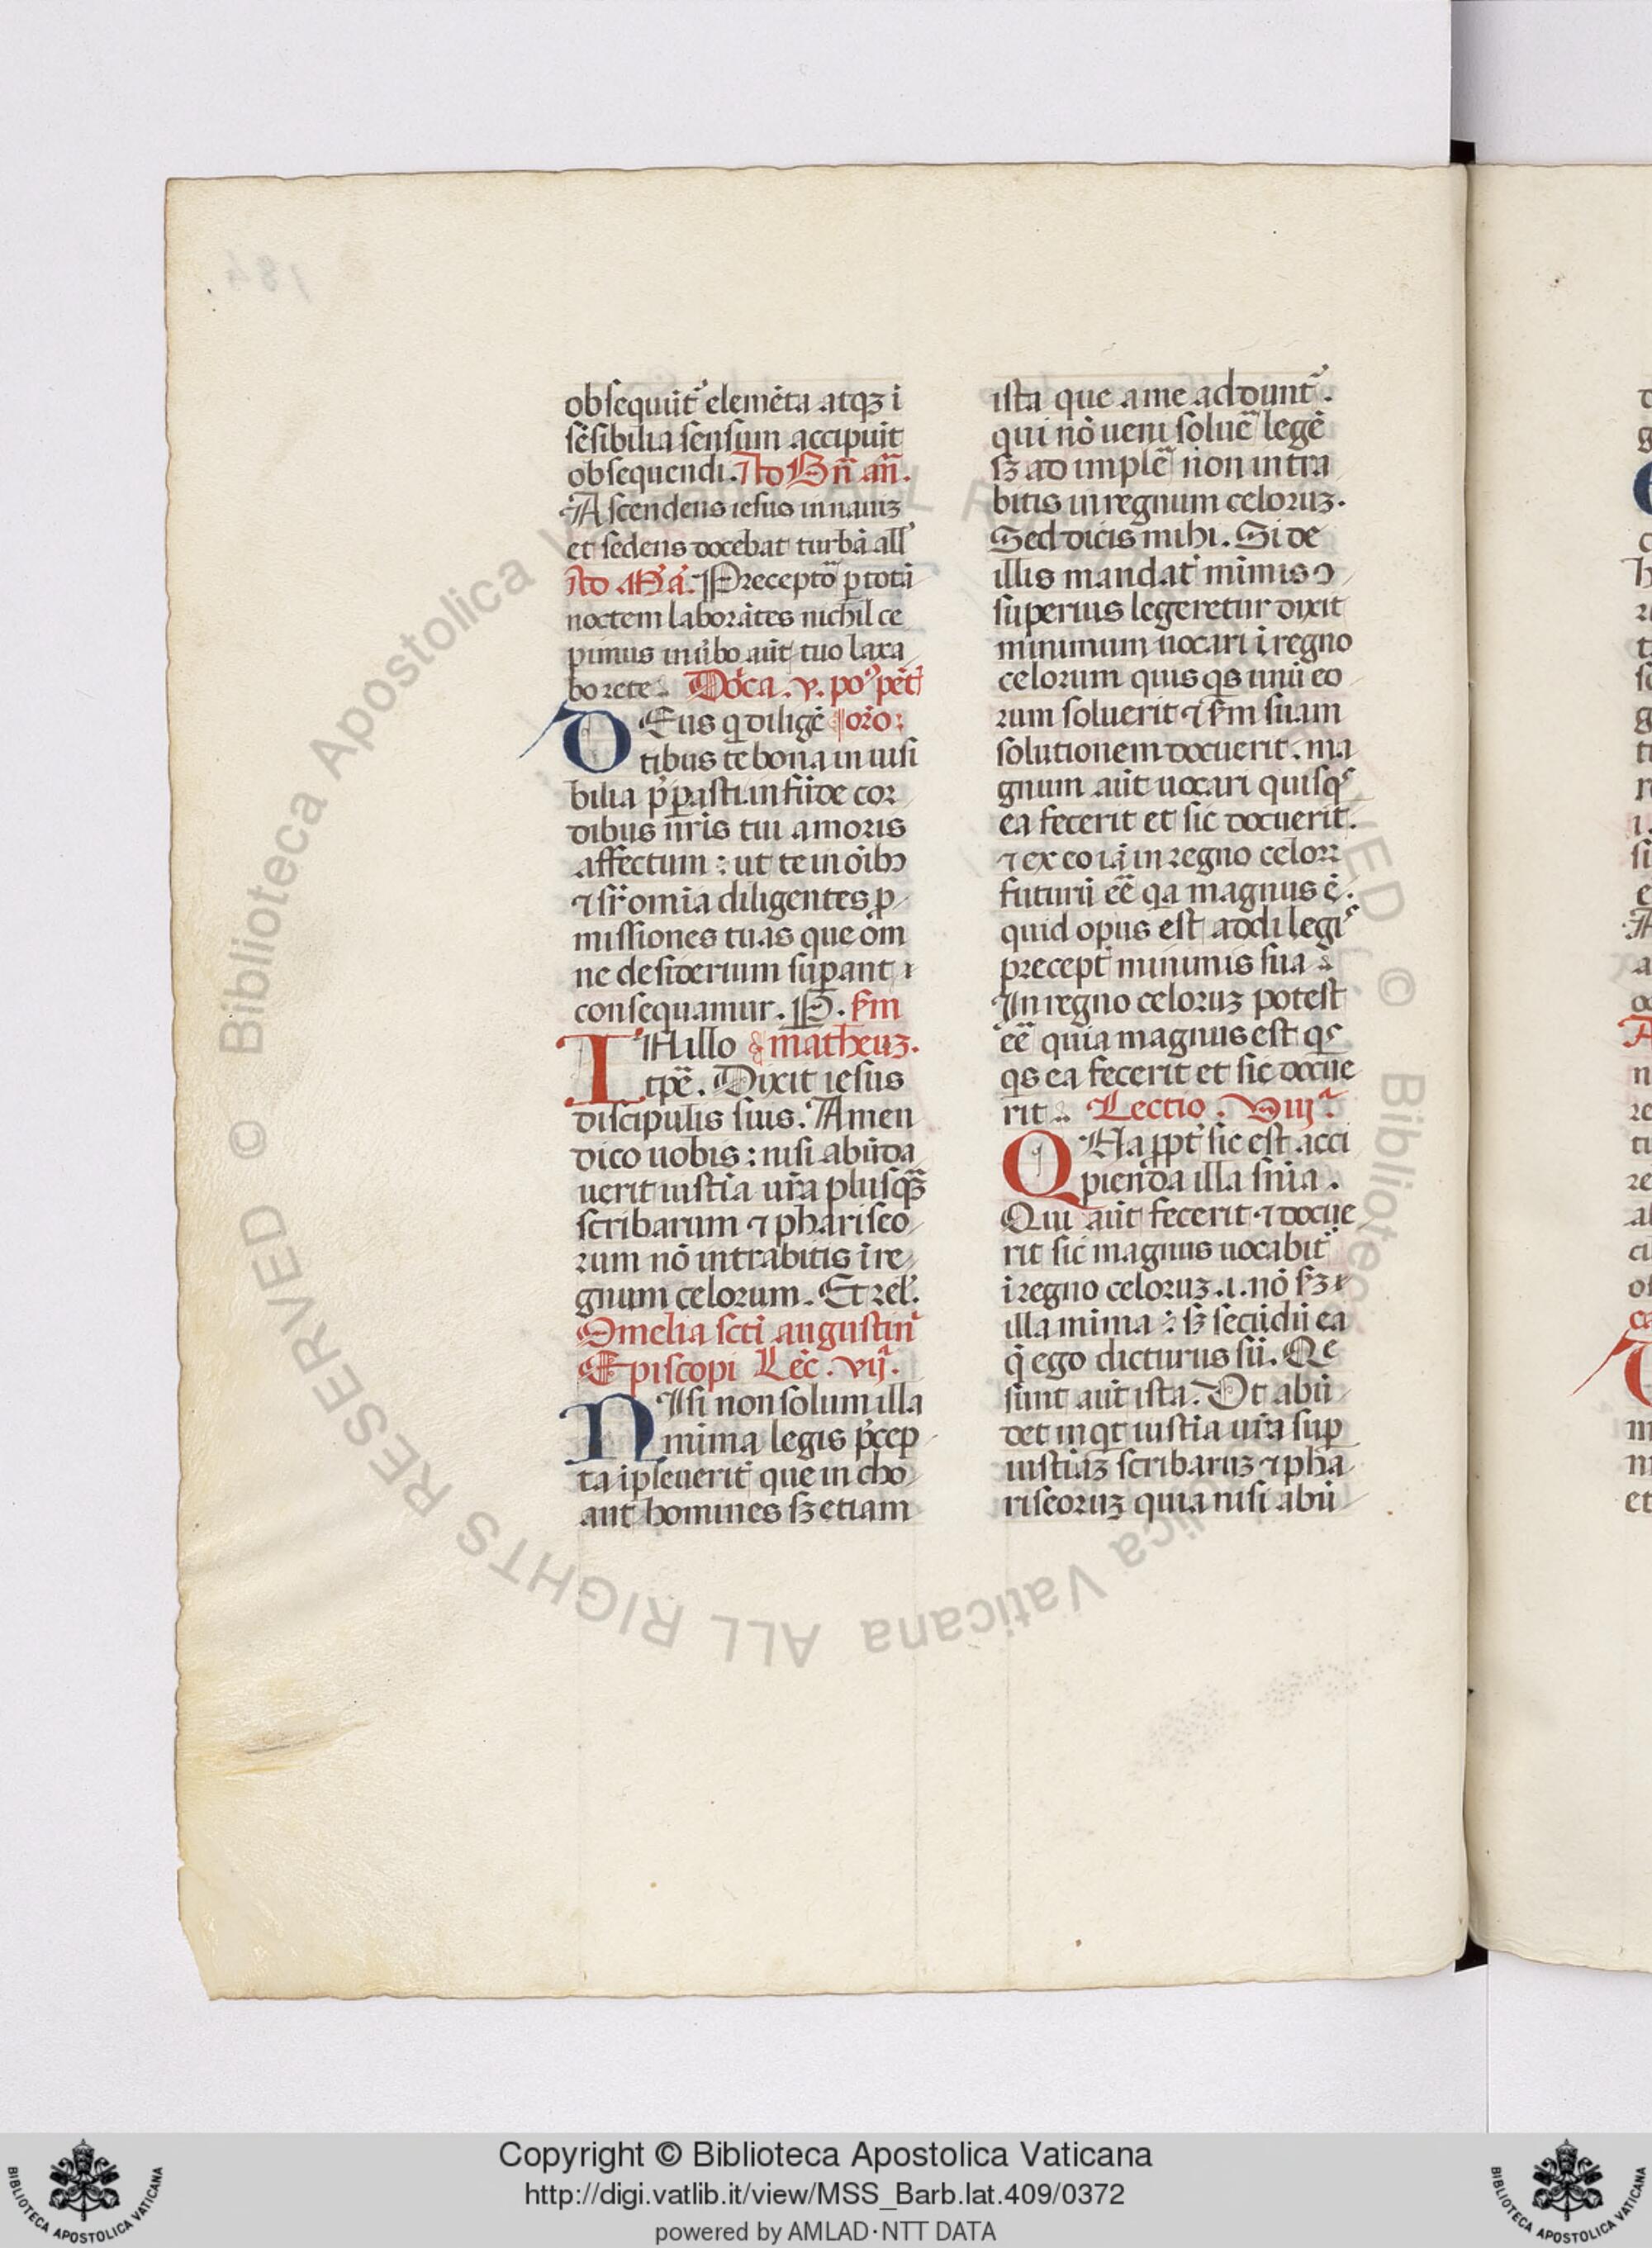 obsequūt᷑ elemēta atqꝫ i
sēsibilia sensum accipiūt
obsequendi. Ad Bn̄ an̄.
Ascendens iesus in nauiꝫ
et sedens docebat turbā all᷑
Ad M̄a. Precepto᷑ p totā
noctem laborātes nichil ce
pimus in ūbo aūt tuo laxa
bo rete. Dōca. v. po᷒ pēt᷑
DEus q diligē oro:
tibus te bona in uisi
bilia p̄parasti. infūde cor
dibus nr̄is tui amoris
affectum : ut te in oībꝫ
⁊ sr̄ omīa diligentes p
missiones tuas que om
ne desiderium superant
consequamur. P. s̄m
IN illo matheuꝫ.
tpē. Dixit iesus
discipulis suis. Amen
dico uobis : nisi abūda
uerit iustīa ur̄a plusqꝫ
scribarum ⁊ phariseo
rum nō intrabitis ī re
gnum celorum. Et rel᷑.
Omelia scti augustin᷑
Episcopi Lec̄. vijᵃ.
NIsi non solum illa
mīma legis p̄cep
ta ipleuerit᷑ que in cho
ant homines sꝫ etiam
ista que a me addunt᷑.
qui nō ueni soluē legē
sꝫ ad implē non intra
bitis in regnum celoruꝫ.
Sed dicis mihi. Si de
illis mandat᷑ mīmis ↄ
superius legeretur dixit
minimum uocari ī regno
celorum quis qs unū eo
rum soluerit ⁊ s̄m suam
solutionem docuerit. ma
gnum aūt uocari quisqs
ea fecerit et sic docuerit.
⁊ ex eo iā in regno celorꝝ
futurū eē qa magnus ē.
quid opus est addi legis
precept᷑ minimis sua
In regno celoruꝫ potest
eē quia magnus est qs
qs ea fecerit et sic docue
rit. Lectio. viijᵃ.
QUa ppt᷑ sic est acci
pienda illa snīa.
Qui aūt fecerit ⁊ docue
rit sic magnus uocabit᷑
ī regno celoruꝫ. ı. nō sꝫ
illa mīma : sꝫ secūdū ea
q̄ ego dicturus sū. Qe
sunt aūt ista. Ut abū
det inqt iustīa ur̄a sup
iustīaꝫ scribaruꝫ ⁊ pha
riseoruꝫ quia nisi abū
Copyright © Biblioteca Apostolica Vaticana
http://digi.vatlib.it/view/MSS_Barb.lat.409/0372
powered by AMLAD·NTT DATA